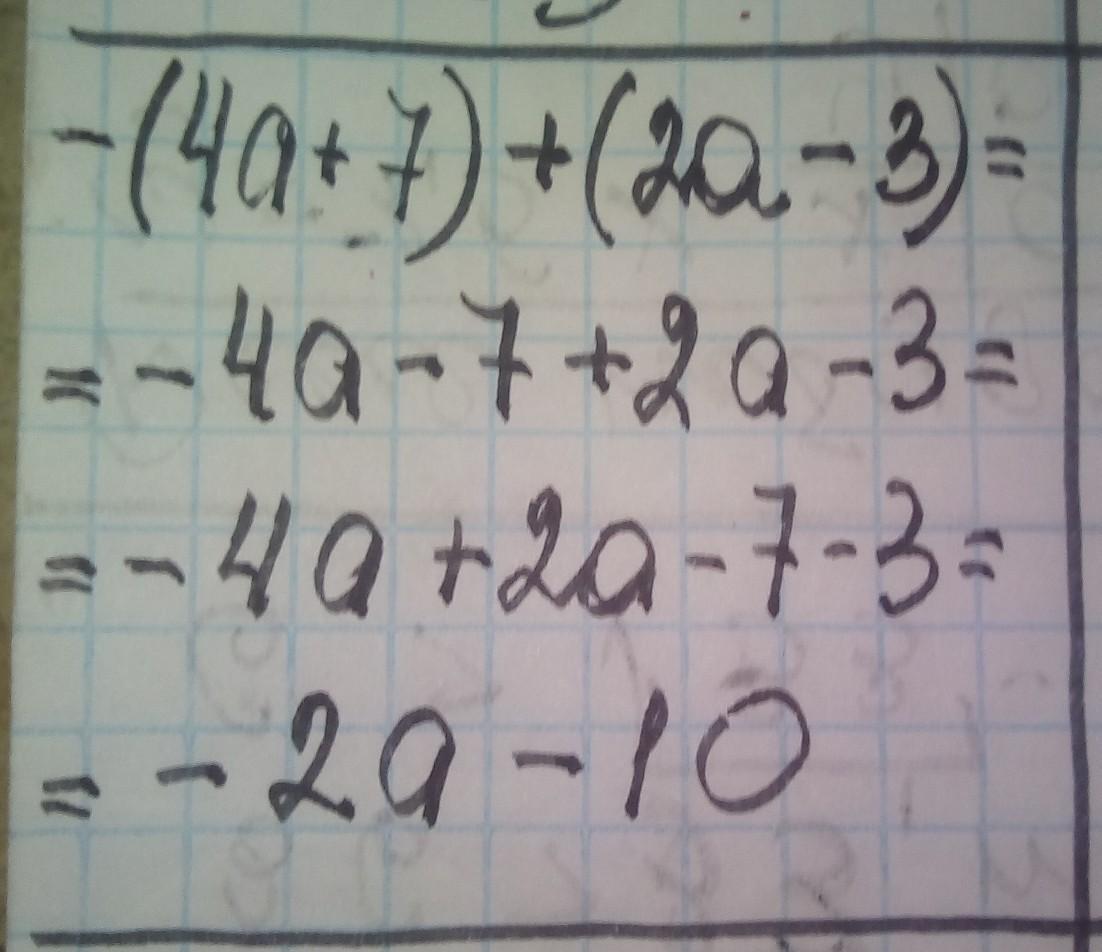 -(4a+7)+(2a-3)=
=-4a-7+2a-3=
=-4a+2a-7-3=
=-2a-10